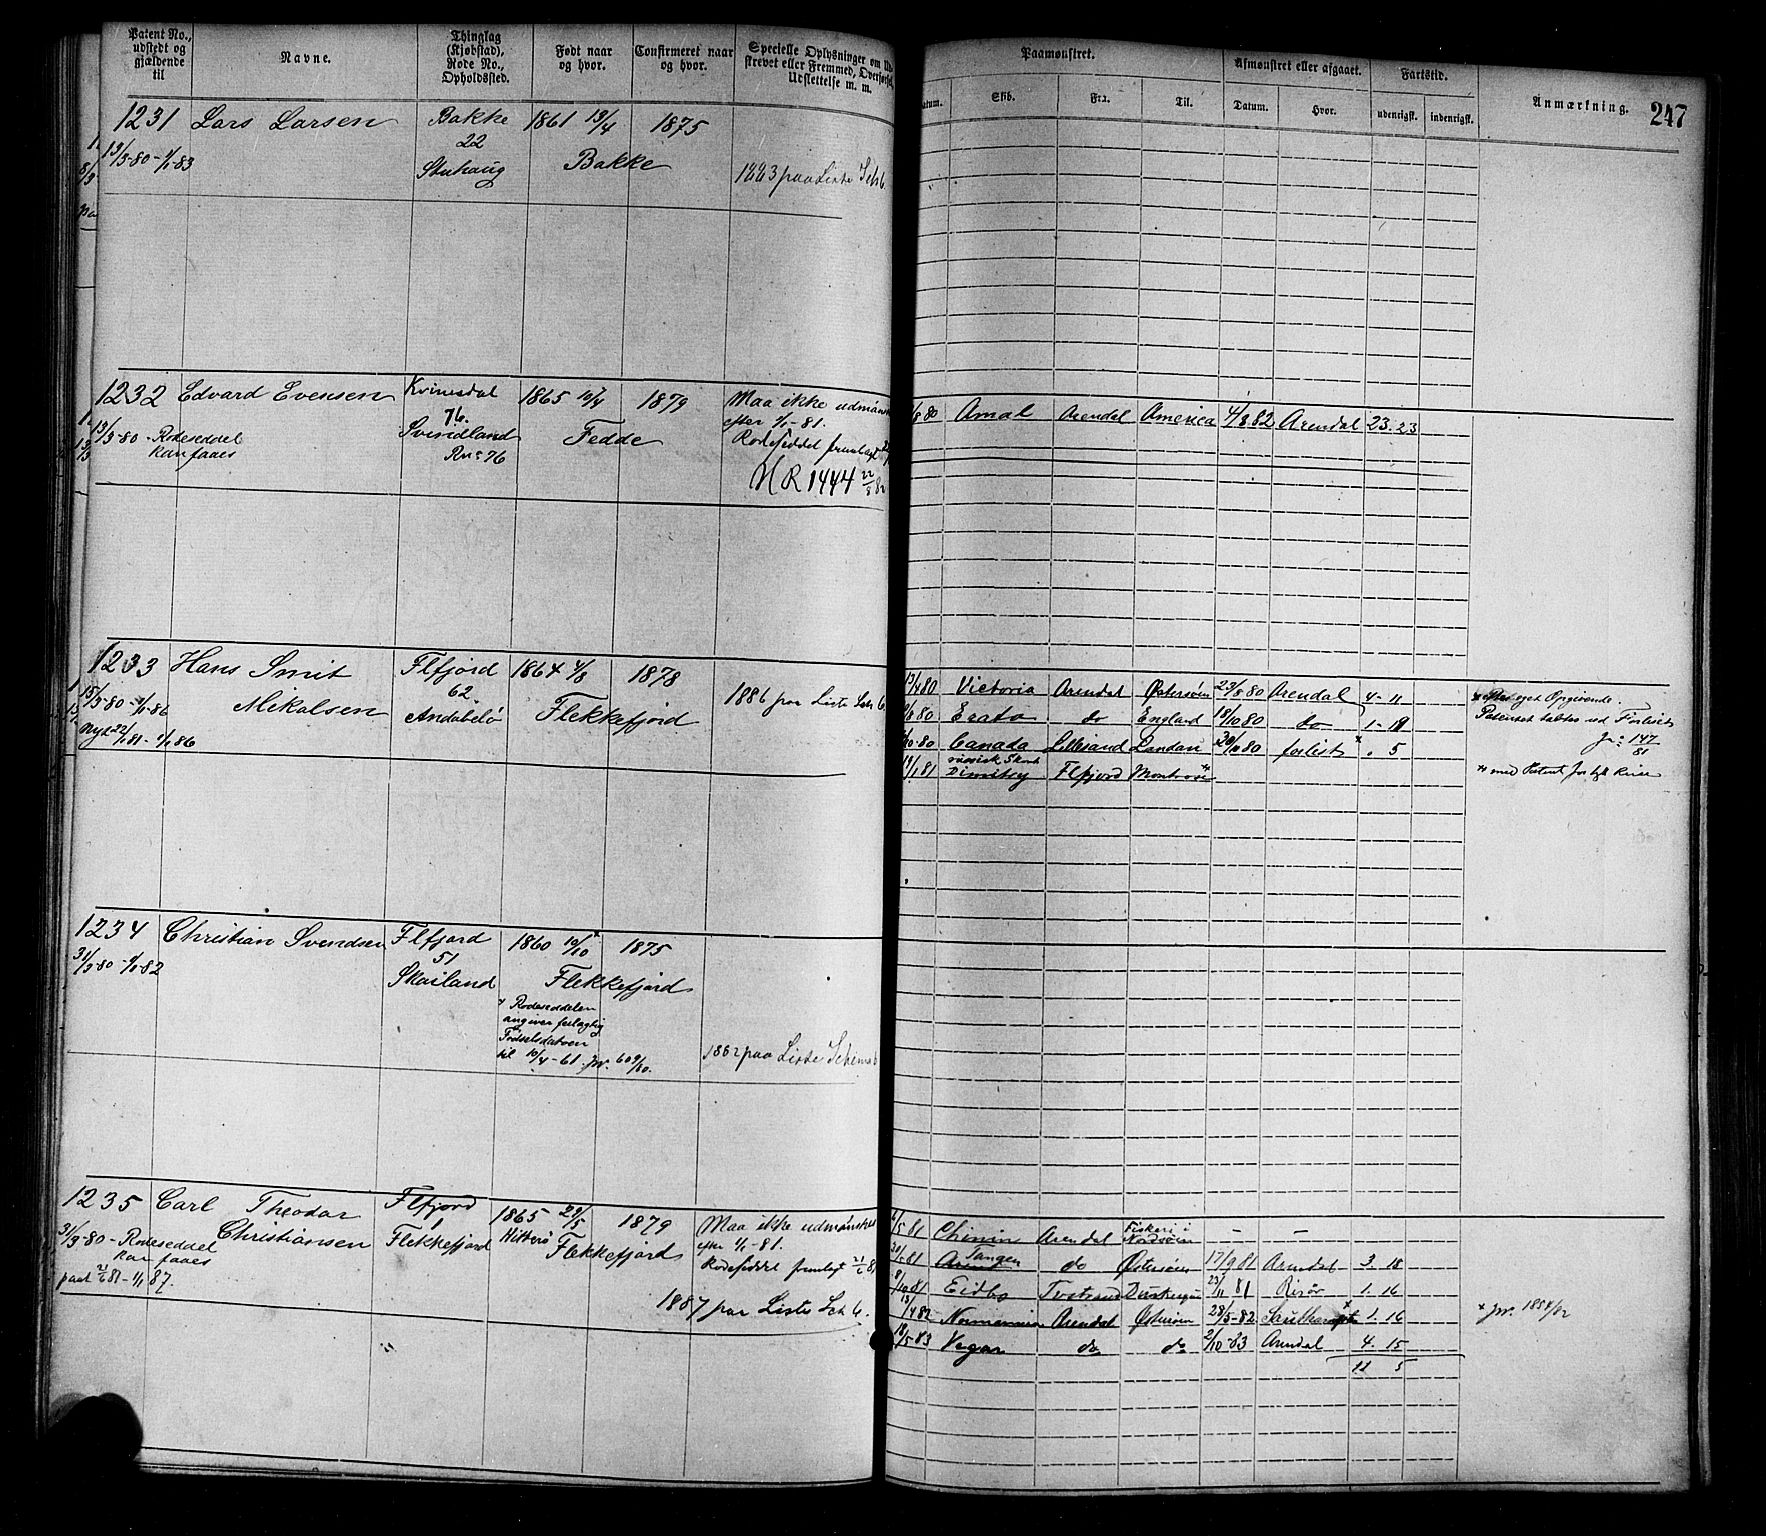 Patent No., udstedt og gjældende til
Navne.
Thinglag (Kjøbstad), Rode No., Opholdssted.
Født naar og hvor.
Confirmeret naar og hvor.
Specielle Oplysninger om Ud-
strevet eller Fremmed, Overførsel,
Udslettelse m. m.
Paamønstret.
Afmønstret eller afgaaet.
Fartstid.
Anmærkning.
247
Datum.
Skib.
Fra.
Til.
Datum.
Hvor.
udenrigsk.
indenrigsk.
1231 Lars Larsen Bakke 1861 13/4 1875
22
13/3-80-1/1-83 Bakke
1883 paa Liste Sch 6
1232 Edvard Evensen Kvinesdal 1865 10/4 1879 Maa ikke udmønst
76. efter 1/1-81.
13/3-80-Rodeseddel Svindland Fedde Rodeseddel fremlagt
kan faaes Rn: 76
NR 1444 22/8 82
/8 80 Amal Arendal America 4/8 82 Arendal 23. 23
1233 Hans Smit Flfjord 1864 4/8 1878
62
15/3-80-1/1-86 Mikalsen Andabelø Flekkefjord 1886 paa Liste Sch 6
Nyt 22/1 81-1/1 86
13/4 80 Victoria Arendal Østersøen 29/8 80 Arendal 4-11
/8 80 Erato do England 18/10 80 do 1-18
/10-80 Canada Lillesand London 20/11 80 forlist x . 5
russisk Skonn
19/1 81 Dimitry Flfjord Montrose
x Efter eget Opgivende.
Patentet tabtes ved Forliset
Jn: 147/81
1234 Christian Svendsen Flfjord 1860 10/10 x 1875
51
31/3-80-1/1-82 Skailand Flekkefjord
x Rodeseddelen
angiver feilagtig
Fødselsdatoen
til 10/4-61. Jnr. 609/80.
1882 paa Liste Schema 6
1235 Carl Theodor Flfjord 1865 29/5 1879 Maa ikke udmønstres
1
31/3-80-Rodeseddel Christiansen Flekkefjord Hitterø Flekkefjord efter 1/1-81.
kan faaes Rodeseddel fremlagt 21/6 81
paat 21/6 81-1/1 87.
1887 paa Liste Sch 6.
/5 81 Arendal Fiskeri i Nordsøen - -
20/6 81 Tangen do Østersøen 17/9 81 Arendal 3. 18
8/10 81 Eidbo Tvedstrand 23/11 81 Risør 1. 16
13/4 82 Arendal Østersøen 28/5-82 1. 16
x Jnr. 1858/82
18/5-83 Vegar do do 2/10-83 Arendal 4. 15
11 5